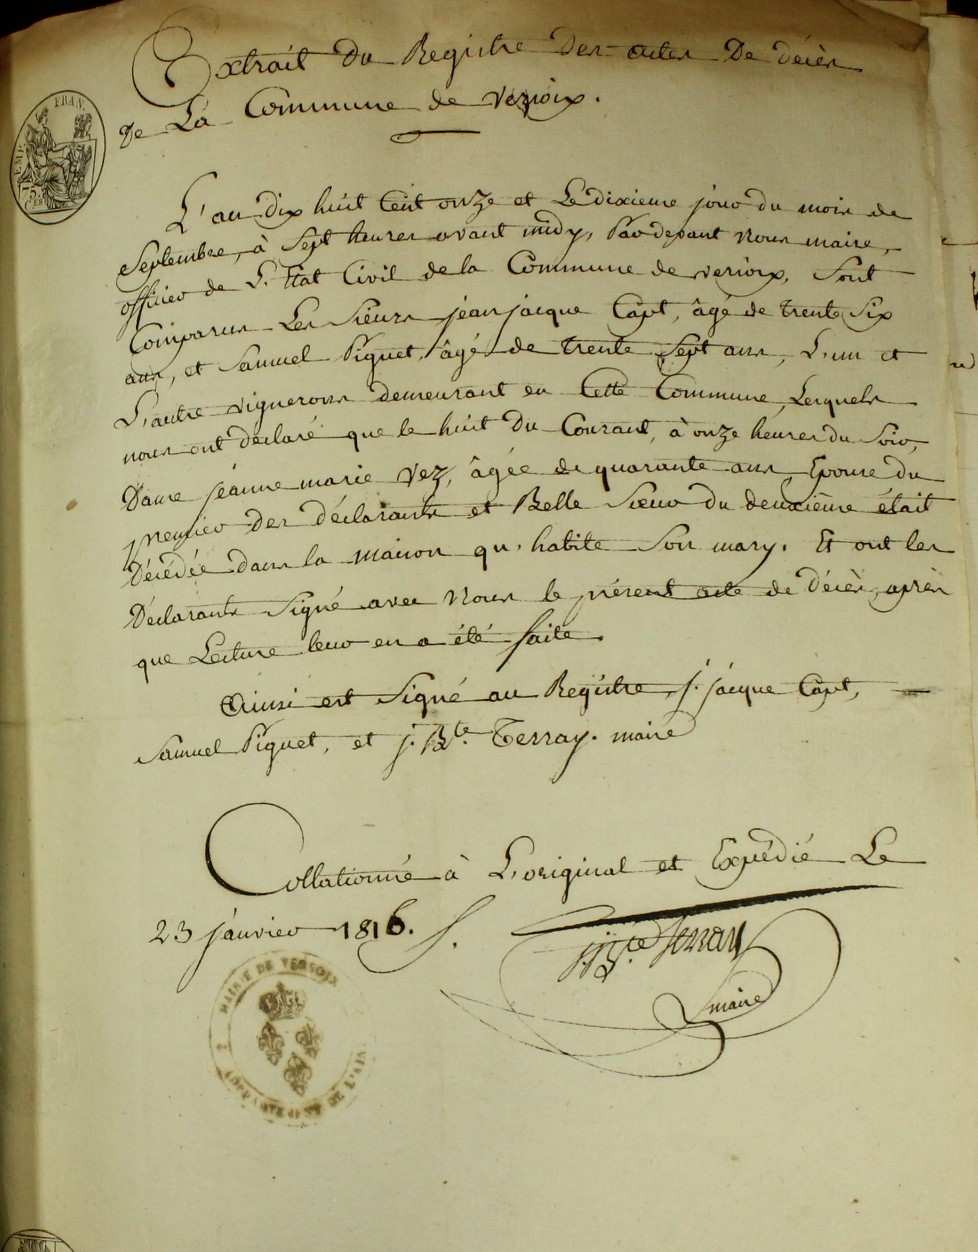 Extrait du Registre des actes de décès
de La Commune de Versoix.
L'an dix huit Cent onze et Le dixieme jour du mois de
Septembre, à Sept heures avant midy, Par devant Nous maire,
officier de L'Etat Civil de la Commune de versoix, Sont
Comparus Les Sieurs jean jacque Capt, âgé de trente Six
ans, et Samuel Piguet, âgé de trente Sept ans, L'un et
L'autre vignerons demeurant en Cette Commune, Lesquels
nous ont déclaré que le huit du Courant, à onze heures du Soir,
Dame jéanne marie Vez, âgée de quarante ans, Epouse du
premier des déclarants et Belle Sœur du deuxième était
Décédée dans la maison qu'habite Son mary. Et ont les
Déclarants Signé avec Nous le présent acte de décès, après
que Lecture leur en a été faite.
Ainsi est Signé au Registre, j. jacque Capt,
Samuel Piguet, et j. Bte. Terray. maire
Collationné à L'original et Expédié Le
23 janvier 1816.
j. Bte Terray
maire
MAIRIE DE VERSOIX
DEPARTEMENT DE L'AIN